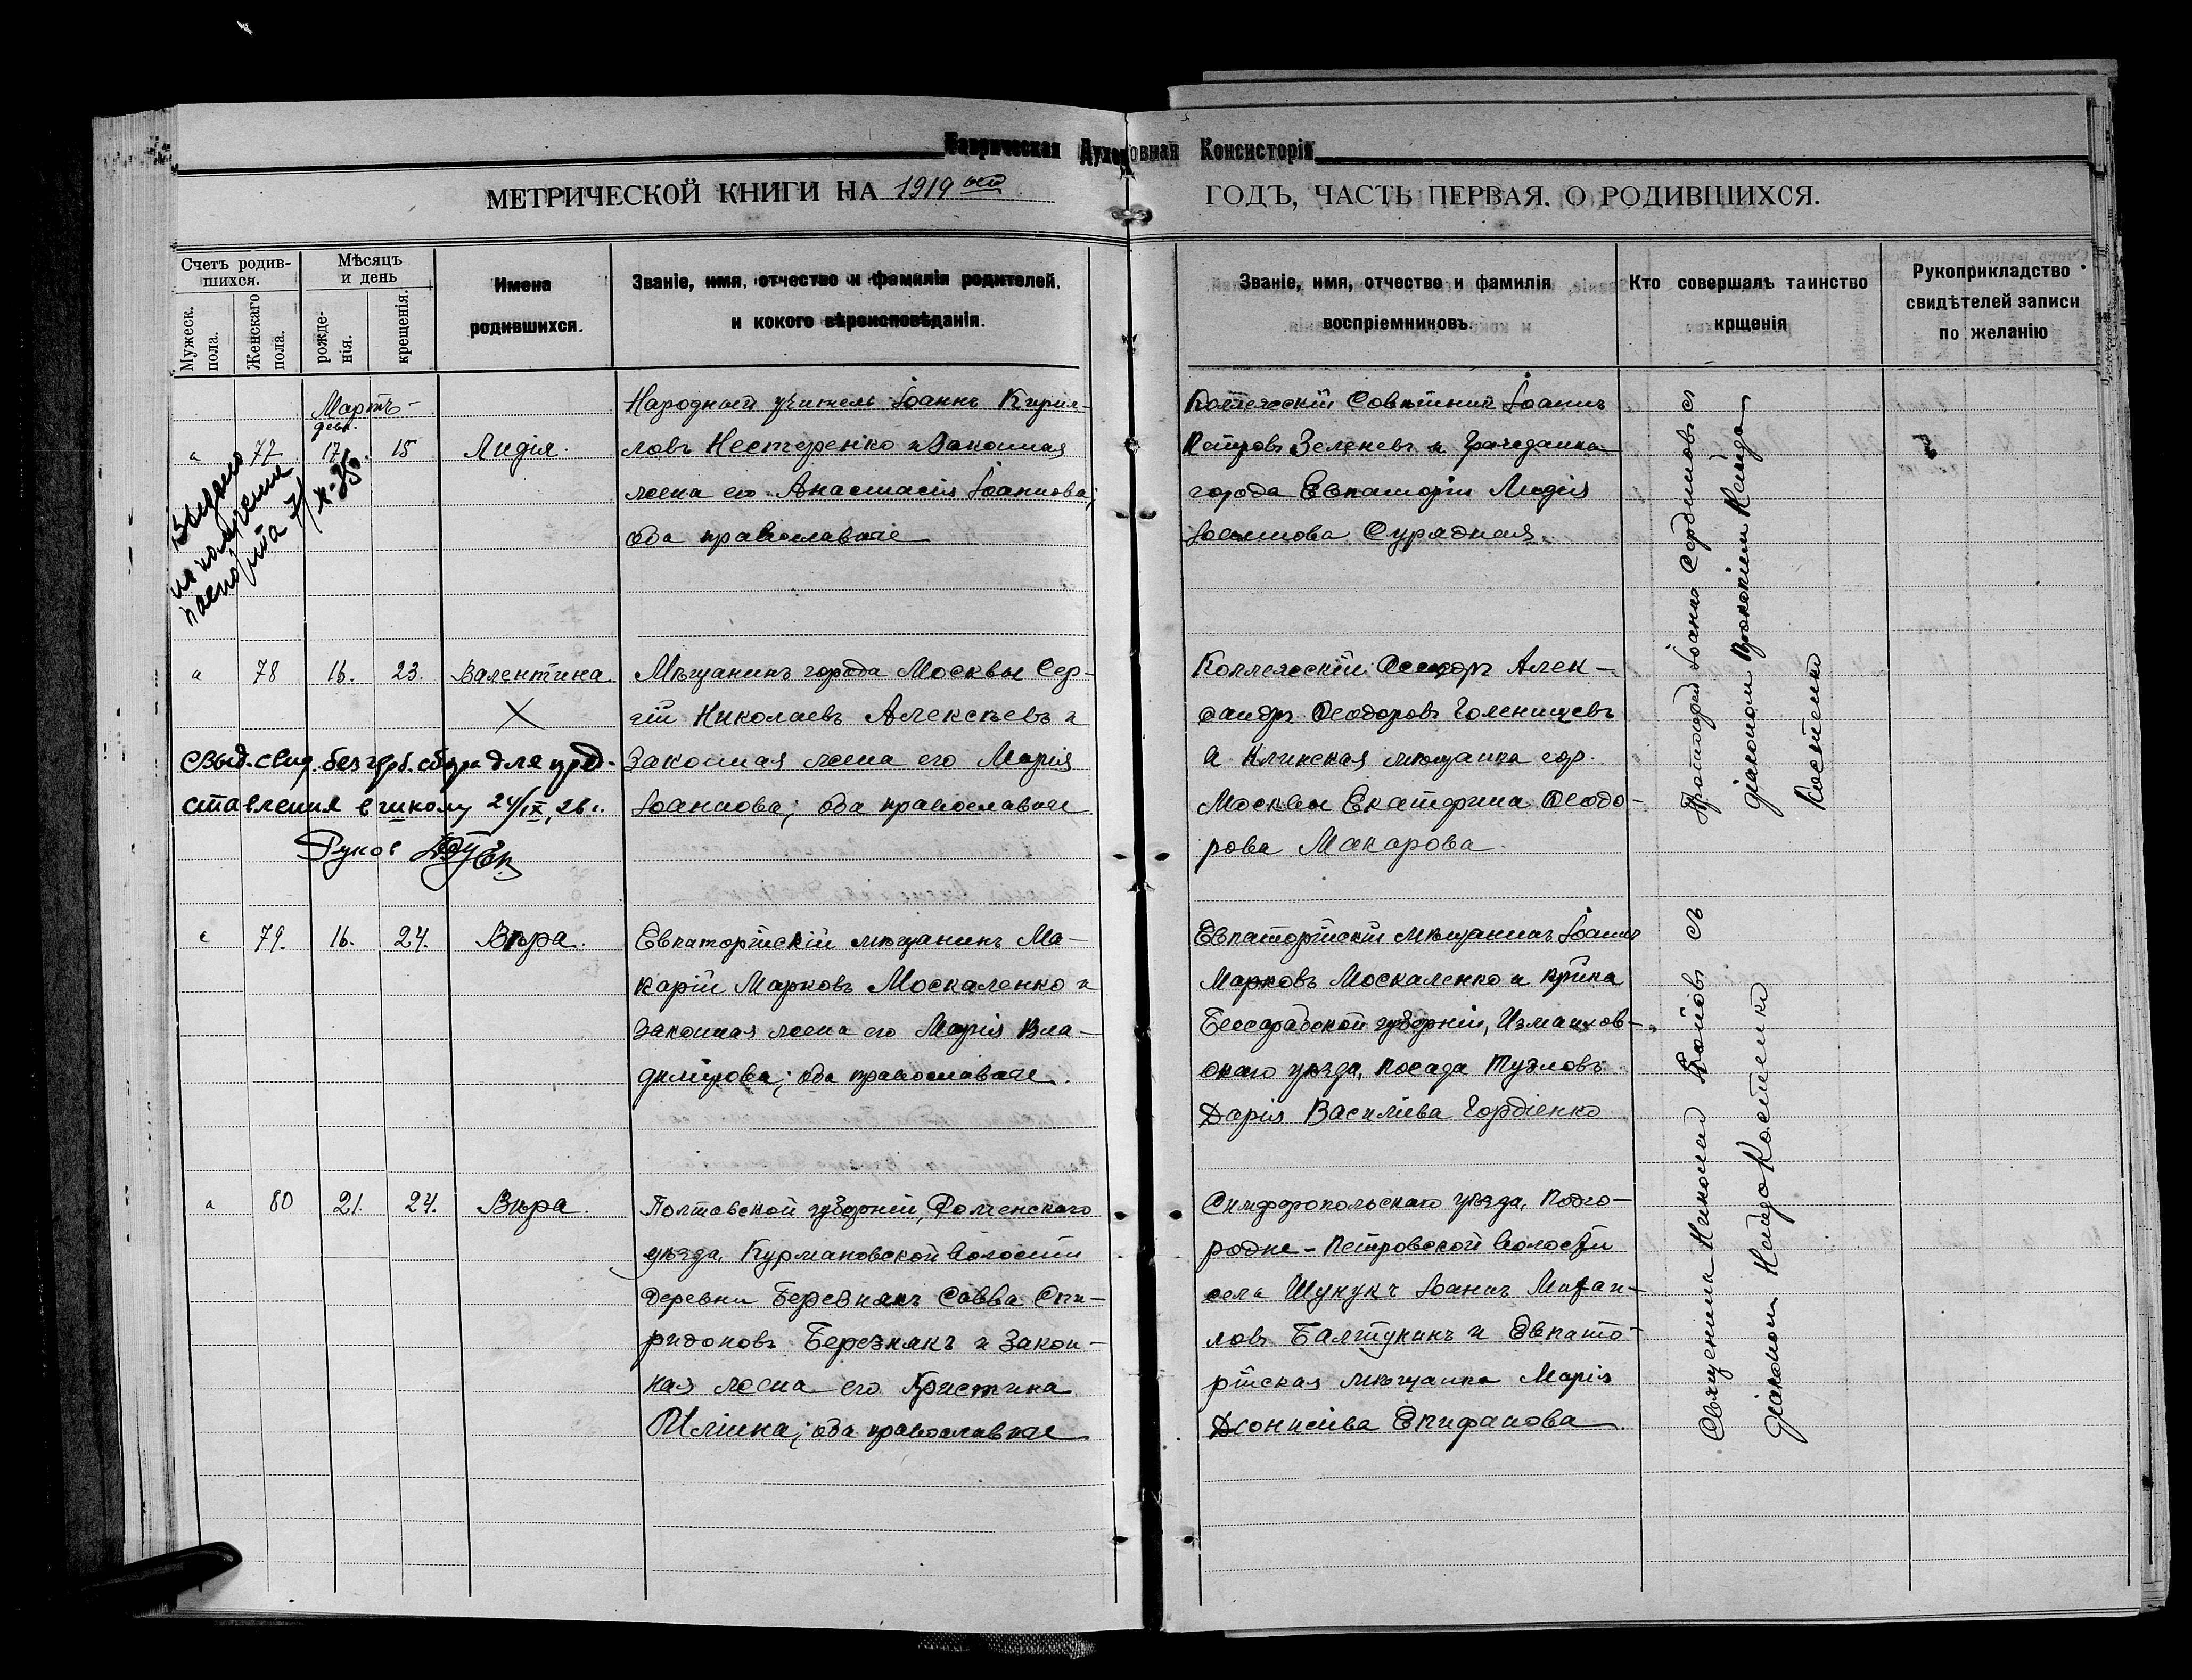 Таврическая Духовная Консисторія
МЕТРИЧЕСКОЙ КНИГИ НА 1919 ый
ГОДЪ, ЧАСТЬ ПЕРВАЯ, О РОДИВШИХСЯ.
Счетъ родив-
шихся.
Мужеск.
пола.
Женскаго
пола.
Мѣсяцъ
и день
рожде-
нія.
крещенія.
Имена
родившихся.
Званіе, имя, отчество и фамилія родителей,
и кокого вѣроисповѣданія.
Званіе, имя, отчество и фамилія
воспріемниковъ.
Кто совершалъ таинство
крщенія
Рукоприкладство
свидѣтелей записи
по желанію
Мартъ
февр.
77 17. 15 Лидія.
Народный учитель Іоаннъ Кирил-
ловъ Нестеренко и законная
жена его Анастасія Іоаннова;
оба православные
Коллежскій Совѣтникъ Іоаннъ
Петровъ Зеленевъ и гражданка
города Евпаторіи Лидія
Іоаннова Сурядная.
Выдано
на получение
паспорта 7/X-35
78 16. 23. Валентина
Мѣщанинъ города Москвы Сер-
гій Николаевъ Алексѣевъ и
законная жена его Марія
Іоаннова; оба православные
Коллежскій Асессоръ Алек-
сандръ Ѳеодоровъ Голенищевъ
и Клинская мѣщанка гор.
Москвы Екатерина Ѳеодо-
рова Макарова.
Выд. свид. без герб. сбора для пред-
ставления в школу 24/IX, 26 г.
Руков
79. 16. 24. Вѣра.
Евпаторійскій мѣщанинъ Ма-
карій Марковъ Москаленко и
законная жена его Марія Вла-
димірова; оба православные.
Евпаторійскій мѣщанинъ Іоаннъ
Марковъ Москаленко и кр-нка
Бессарабской губерніи, Измаилов-
скаго уѣзда, посада Тузловъ
Дарія Василіева Гордіенко
80 21. 24. Вѣра.
Полтавской губерніи, Роменскаго
уѣзда, Курмановской волости
деревни Березнякъ Савва Спи-
ридоновъ Березнякъ и закон-
ная жена его Христина
Иліина; оба православные
Симферопольскаго уѣзда, Подго-
родне-Петровской волости
села Шукукъ Іоаннъ Михаи-
ловъ Балтукинъ и Евпато-
рійская мѣщанка Марія
Діонисіева Епифанова
Протоіерей Іоаннъ Сердиновъ съ
діакономъ Прокопіемъ Кейдо
Костенко
Священникъ Николай Войовъ съ
діакономъ Кейдо Костенко